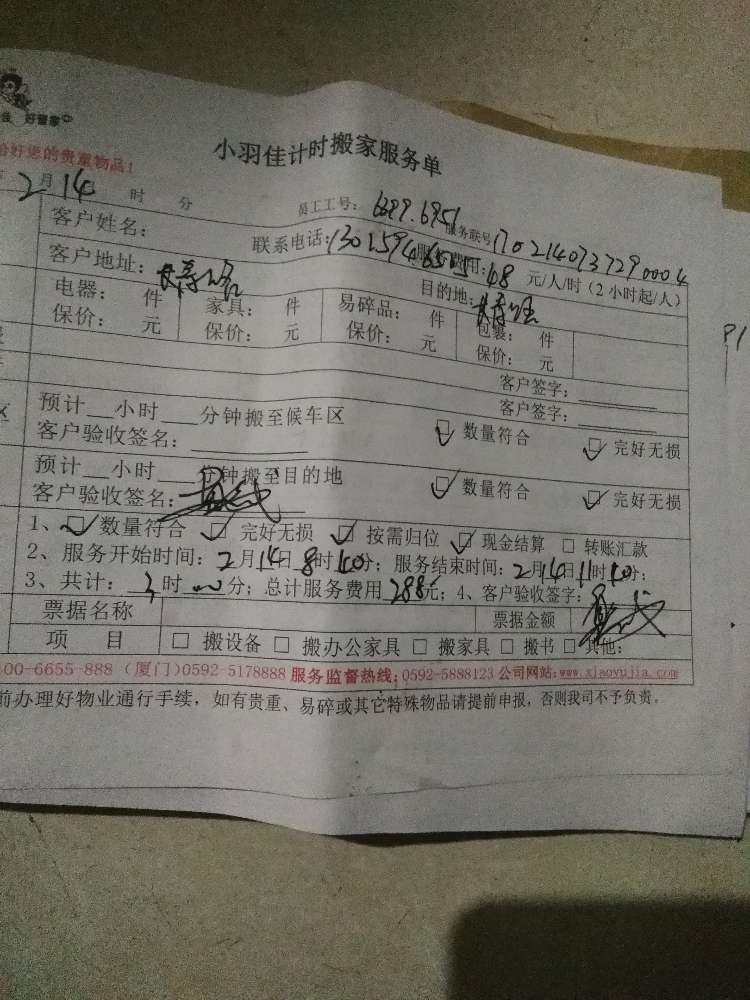 好管家
小羽佳计时搬家服务单
好您的贵重物品!
2月14 时 分 员工工号: 6399.6951 服务联号:1702140737290004
客户姓名: 联系电话: 服务费用:48 元/人/时(2小时起/人)
客户地址: 目的地:
电器: 件 家具: 件 易碎品: 件 包装: 件
保价: 元 保价: 元 保价: 元 保价: 元
客户签字:
预计__小时___分钟搬至候车区 客户签字:
客户验收签名: □数量符合 □完好无损
预计__小时___分钟搬至目的地
客户验收签名: □数量符合 □完好无损
1、□数量符合 □完好无损 □按需归位 □现金结算 □转账汇款
2、服务开始时间:2月14日8时10分;服务结束时间:2月14日11时10分;
3、共计:3时 分;总计服务费用288元;4、客户验收签字:
票据名称 票据金额
项 目 □搬设备 □搬办公家具 □搬家具 □搬书 □其他:
00-6655-888 (厦门)0592-5178888 服务监督热线:0592-5888123 公司网站:www.xiaoyujia.com
前办理好物业通行手续,如有贵重、易碎或其它特殊物品请提前申报,否则我司不予负责。